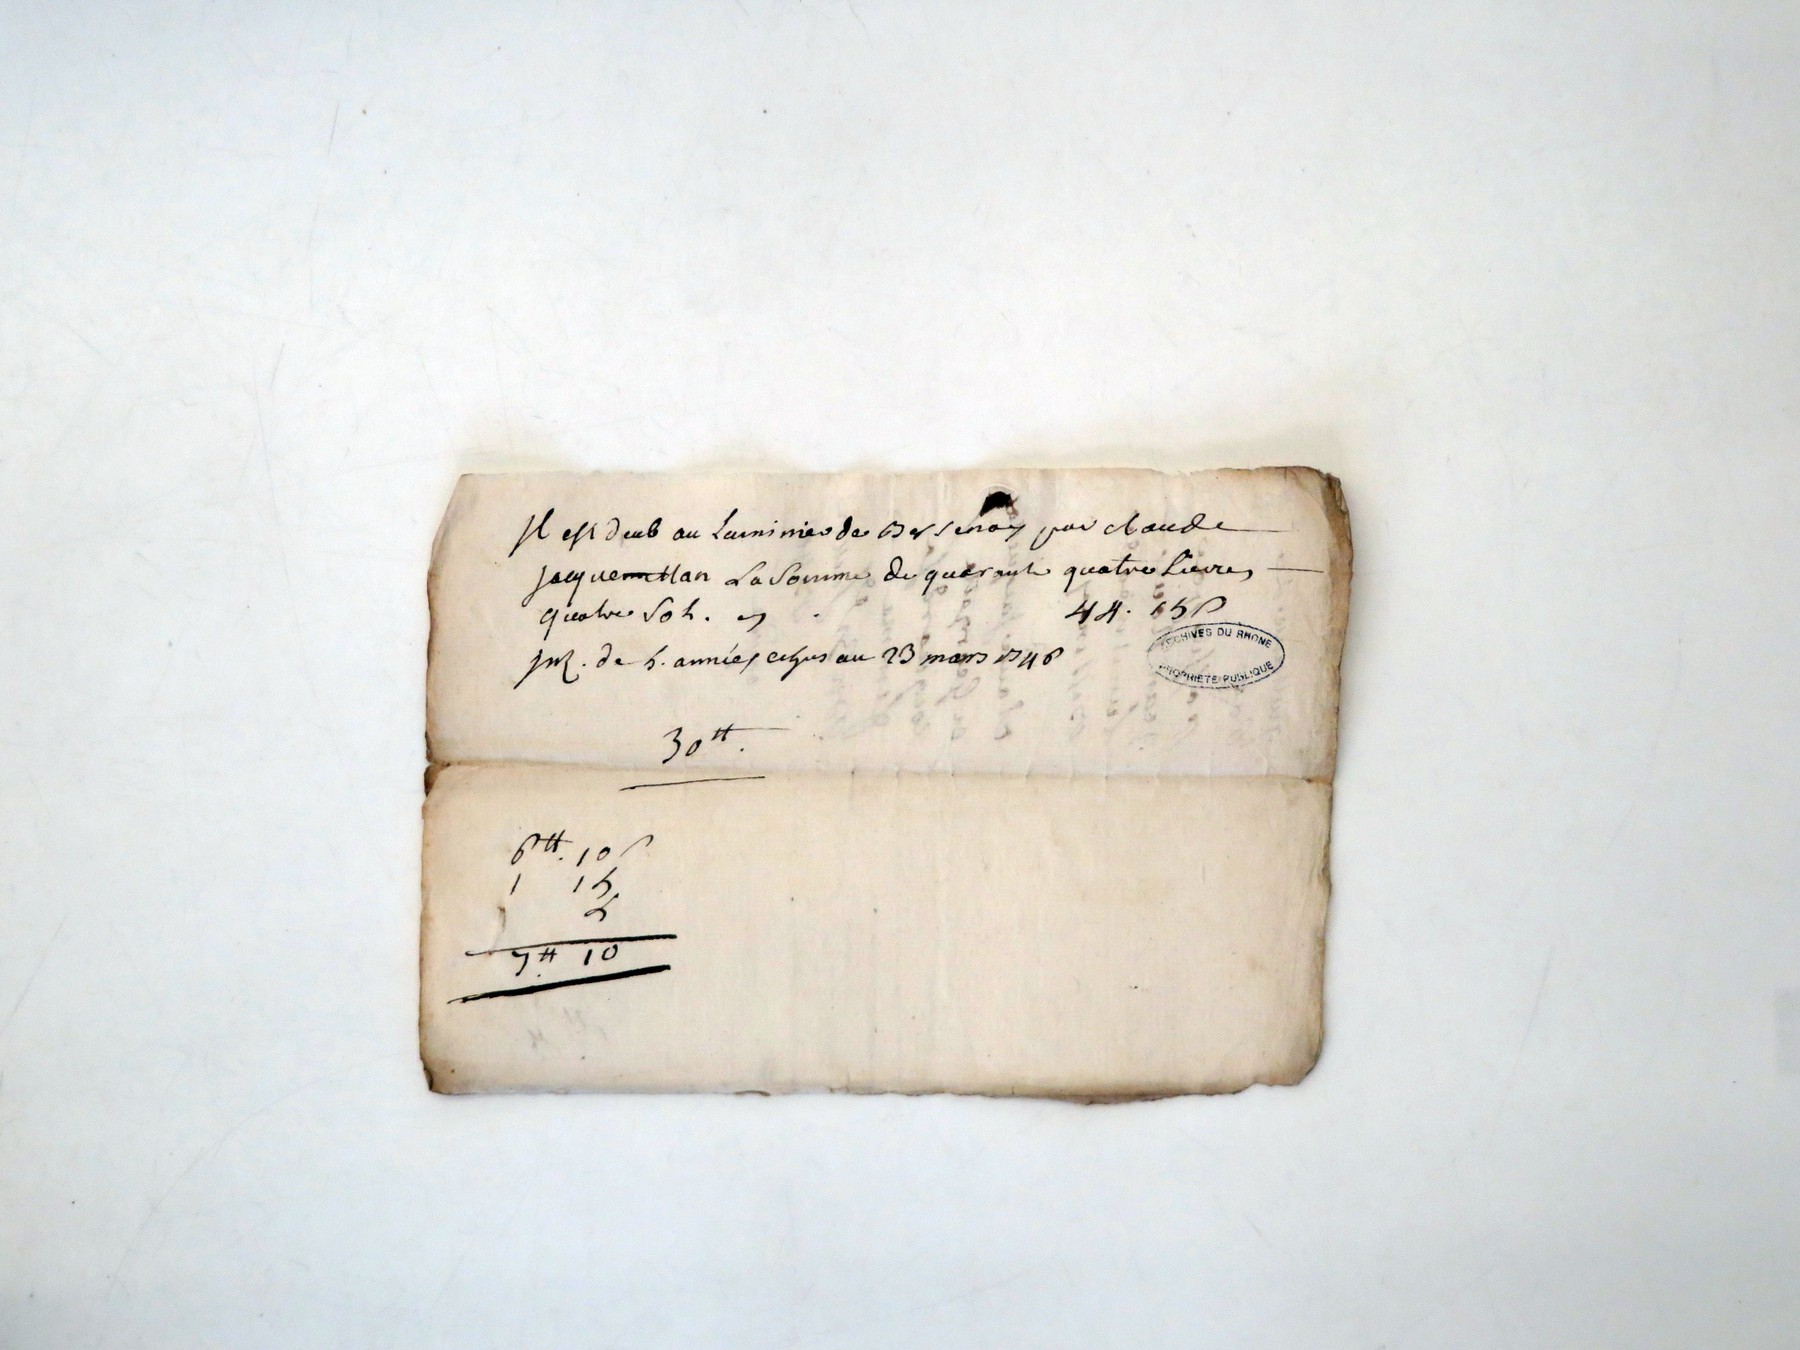 Il est deub au Luminier de Bessenay par claude
Jacquemettan La Somme de quarante quatre Livres
quatre Sols. 44. 15 s
Int. de 5. années echus au 23 mars 1746
ARCHIVES DU RHONE
PROPRIETE PUBLIQUE
30 ₶.
6 ₶. 10 s
1 15
7 ₶ 10